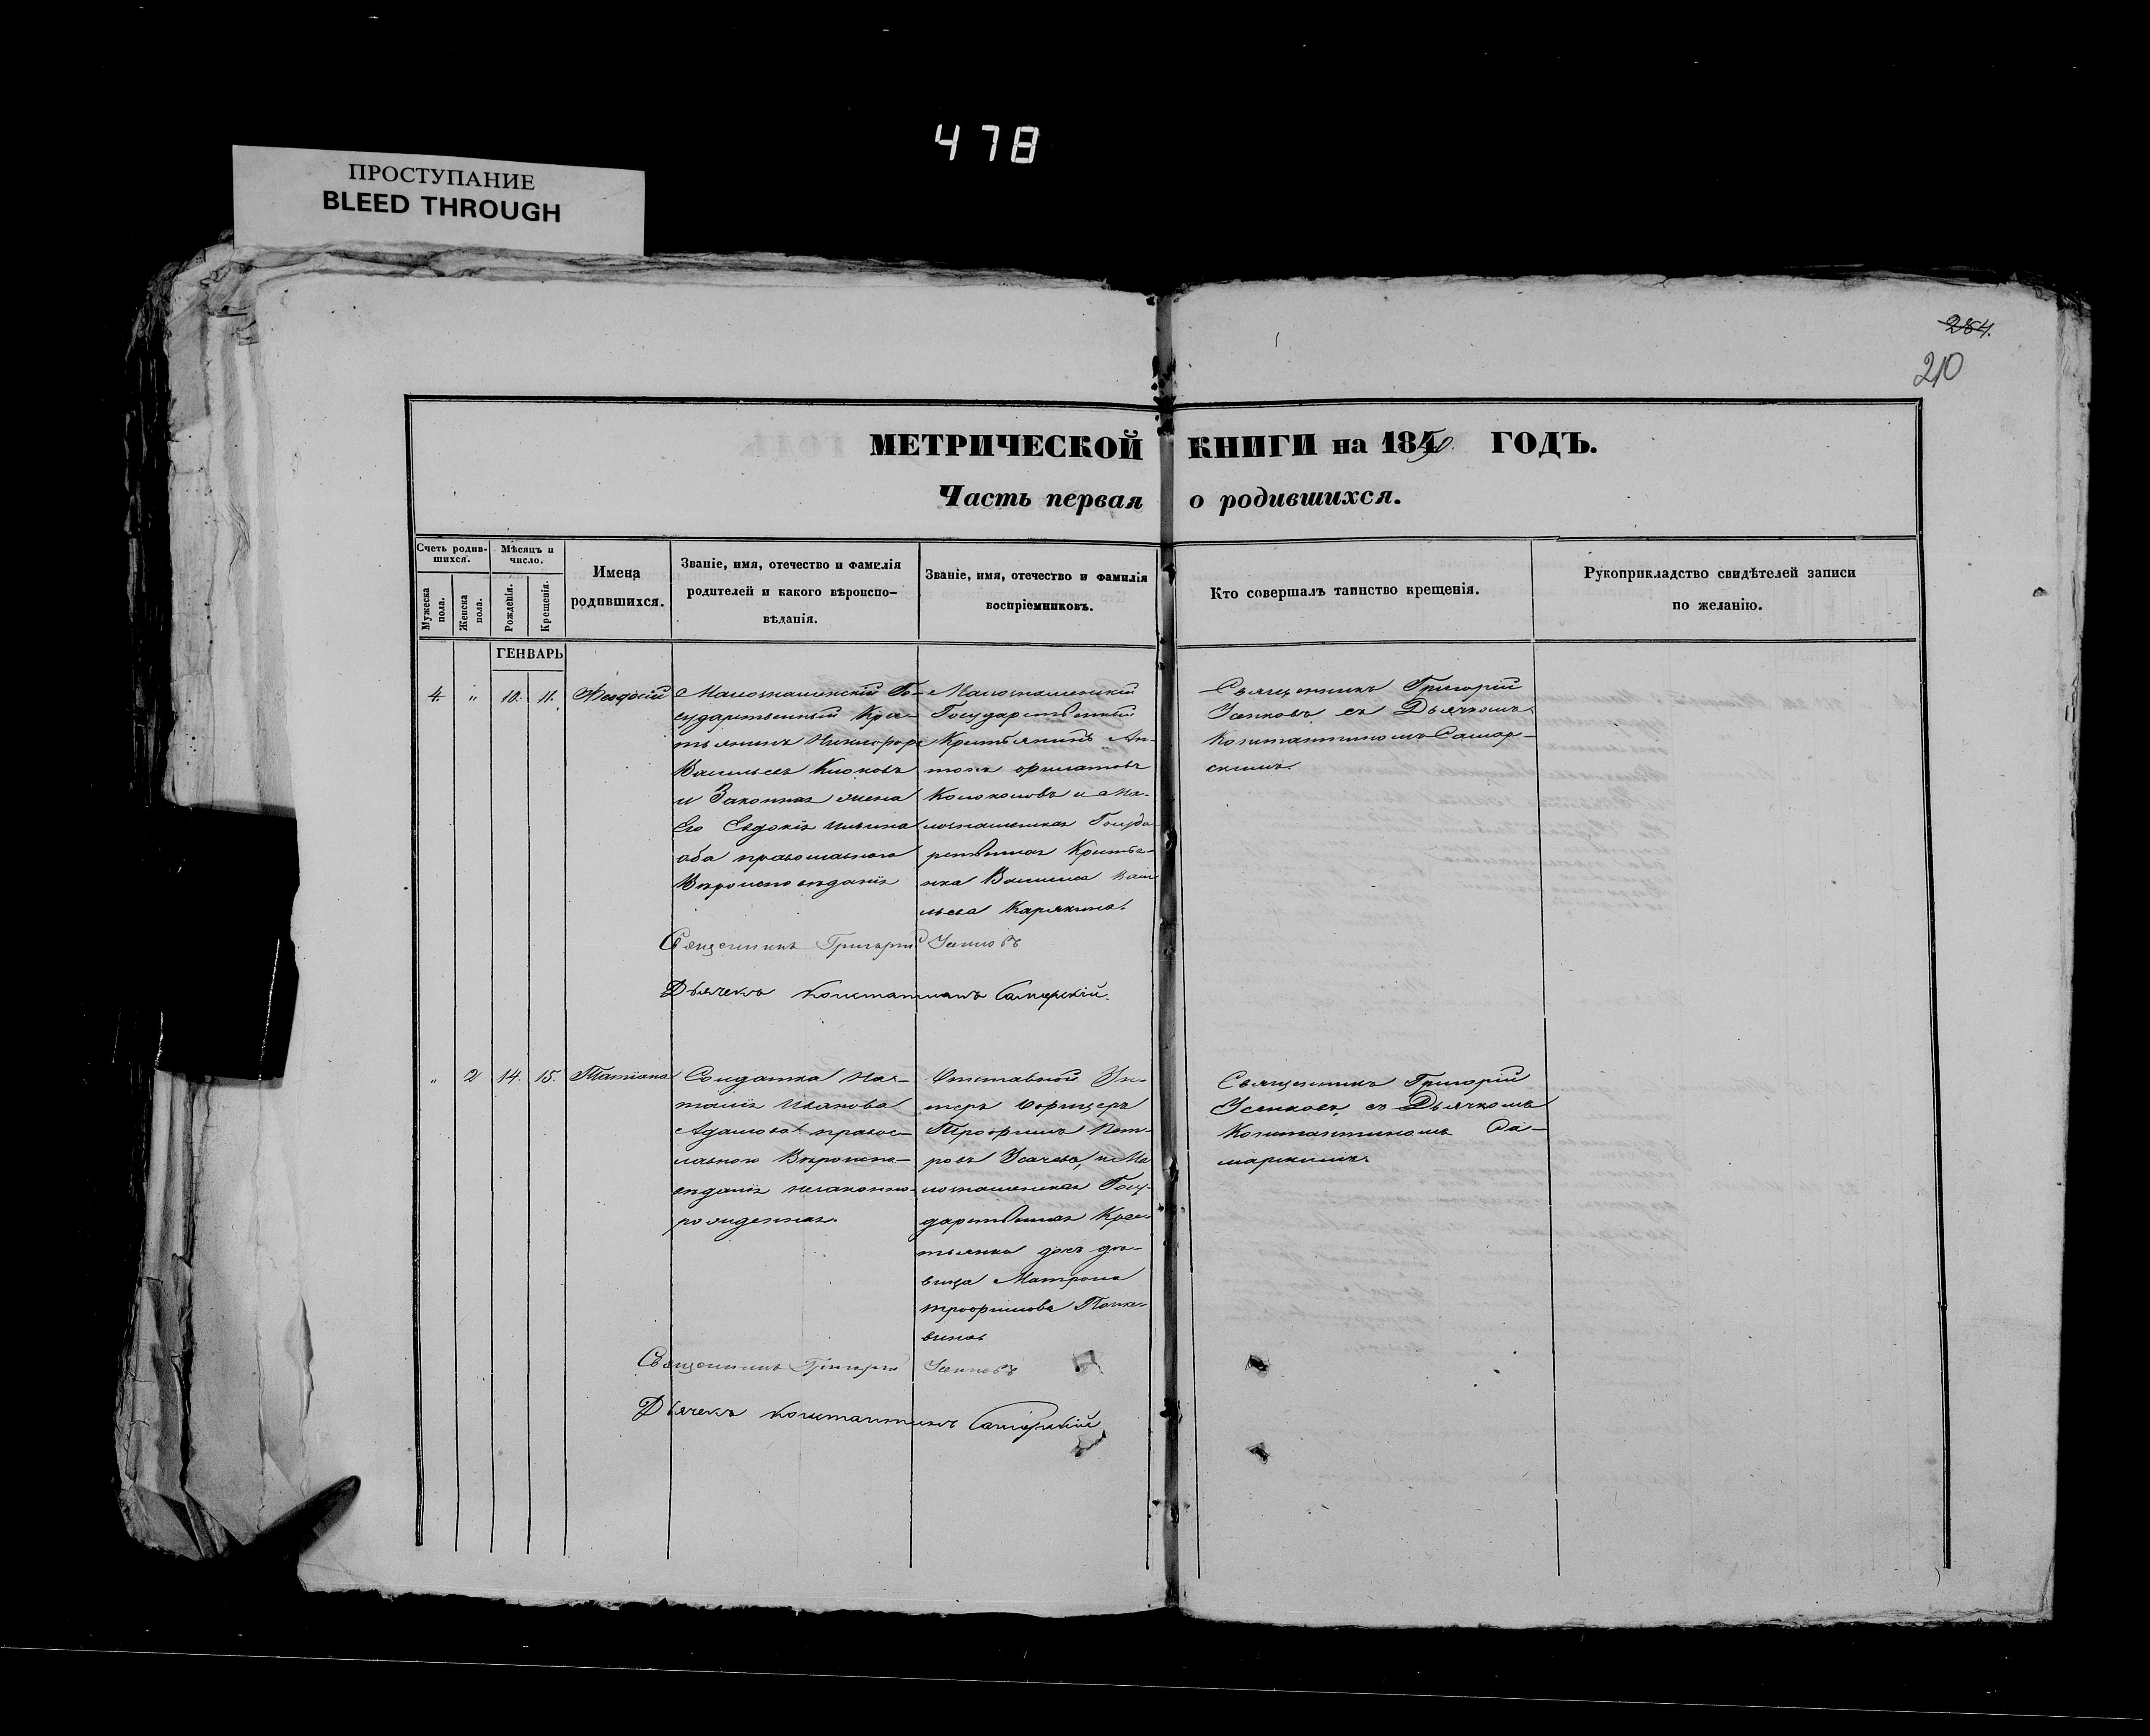 478
ПРОСТУПАНИЕ
BLEED THROUGH
284.
210
МЕТРИЧЕСКОЙ КНИГИ на 1850 ГОДЪ.
Часть первая о родившихся.
Счетъ родив-
шихся.
Мужеска пола.
Женска пола.
Мѣсяцъ и
число.
Рожденія.
Крещенія.
Имена
родившихся.
Званіе, имя, отечество и фамилія
родителей и какого вѣроиспо-
вѣданія.
Званіе, имя, отечество и фамилія
воспріемниковъ.
Кто совершалъ таинство крещенія.
Рукоприкладство свидѣтелей записи
по желанію.
ГЕНВАРЬ
4. " 10. 11. Ѳеодосій
Го-
сударственный Крес-
тьянинъ Никифоръ
Васильевъ Клоковъ
и Законная жена
Его Евдокія Ильина
оба православнаго
Вѣроисповѣданія
Государственный
Крестьянинъ Ан-
тонъ Филатовъ
Колоколовъ и Ма-
Госуда-
рственная Крестья-
нка Василиса Васи
льева Карякина.
Священникъ Григорій
Усенковъ съ Дьячкомъ
Константиномъ Самар-
скимъ.
Священникъ Григорій Усенковъ
Дьячекъ Константинъ Самарскій.
" 2 14. 15. Татіана
Солдатка На-
талія Иванова
Адамова православ-
наго Вѣроиспо-
вѣданія незаконно-
рожденная.
Отставной Ун-
теръ Офицеръ
Трофимъ Пет-
ровъ Усачевъ, и Ма
Госу-
дарственная Крес-
тьянка дочь дѣ-
вица Матрона
Трофимова
Священникъ Григорій
Усенковъ, съ Дьячкомъ
Константиномъ Са-
марскимъ.
Священникъ Григорій Усенковъ
Дьячекъ Константинъ Самарскій